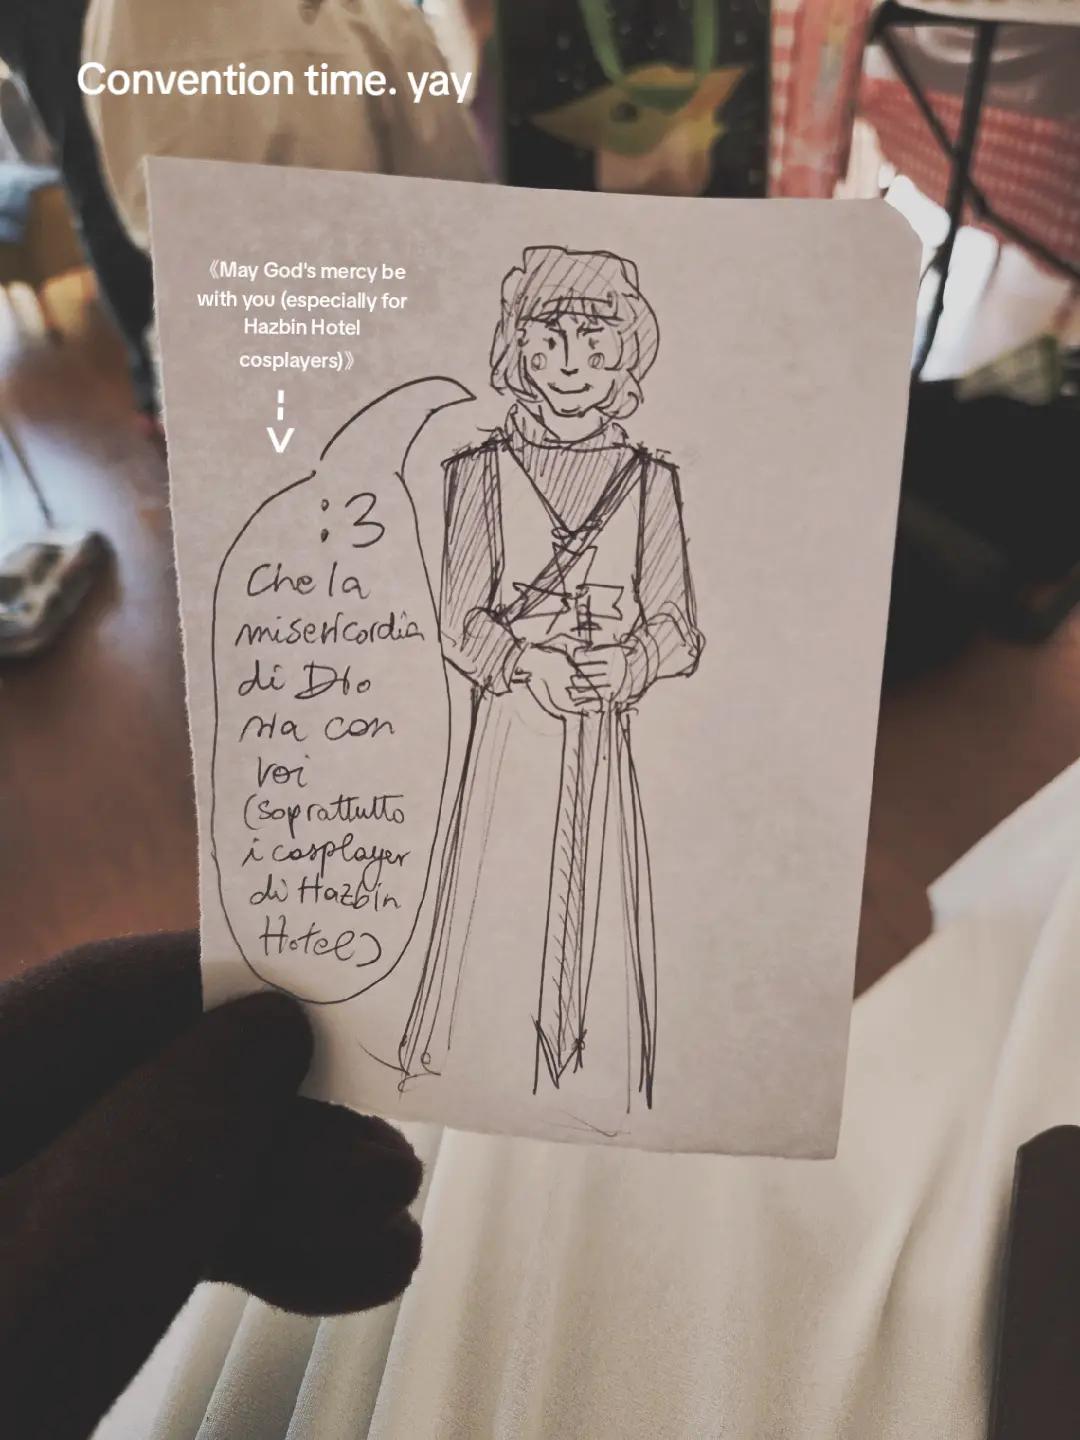 Convention time. yay
《May God's mercy be
with you (especially for
Hazbin Hotel
cosplayers)》
:3
Che la
misericordia
di Dio
sia con
voi
(soprattutto
i cosplayer
di Hazbin
Hotel)